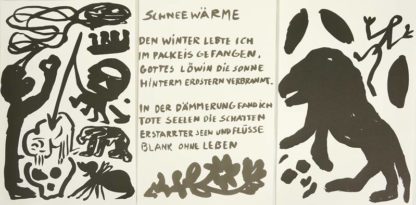 SCHNEEWÄRME
DEN WINTER LEBTE ICH
IM PACKEIS GEFANGEN,
GOTTES LÖWIN DIE SONNE
HINTERM ERDSTERN VERBRANNT.
IN DER DÄMMERUNG FAND ICH
TOTE SEELEN DIE SCHATTEN
ERSTARRTER SEIN UND FLÜSSE
BLANK OHNE LEBEN